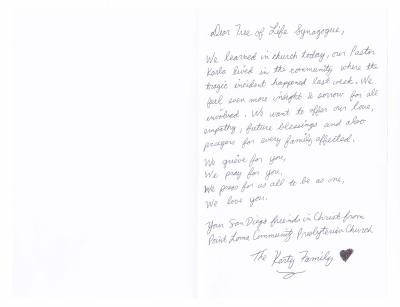 Dear Tree of Life Synagogue,
We learned in church today, our Pastor
Karla lived in the community where the
tragic incident happened last week. We
feel even more insight & sorrow for all
involved. We want to offer our love,
empathy, future blessings and also
prayers for every family affected.
We grieve for you,
We pray for you,
We press for us all to be as one,
We love you.
Your San Diego friends in Christ from
Point Loma Community Presbyterian Church
The Karty Family